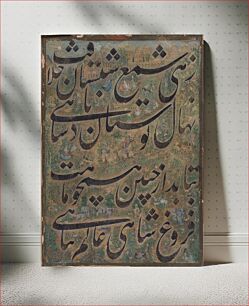 زهی شمع شبستان خلافت
نهال بوستان دشاهی
نتابد از جبین همچو ماهت
فروغ شاهی عالم پناهی